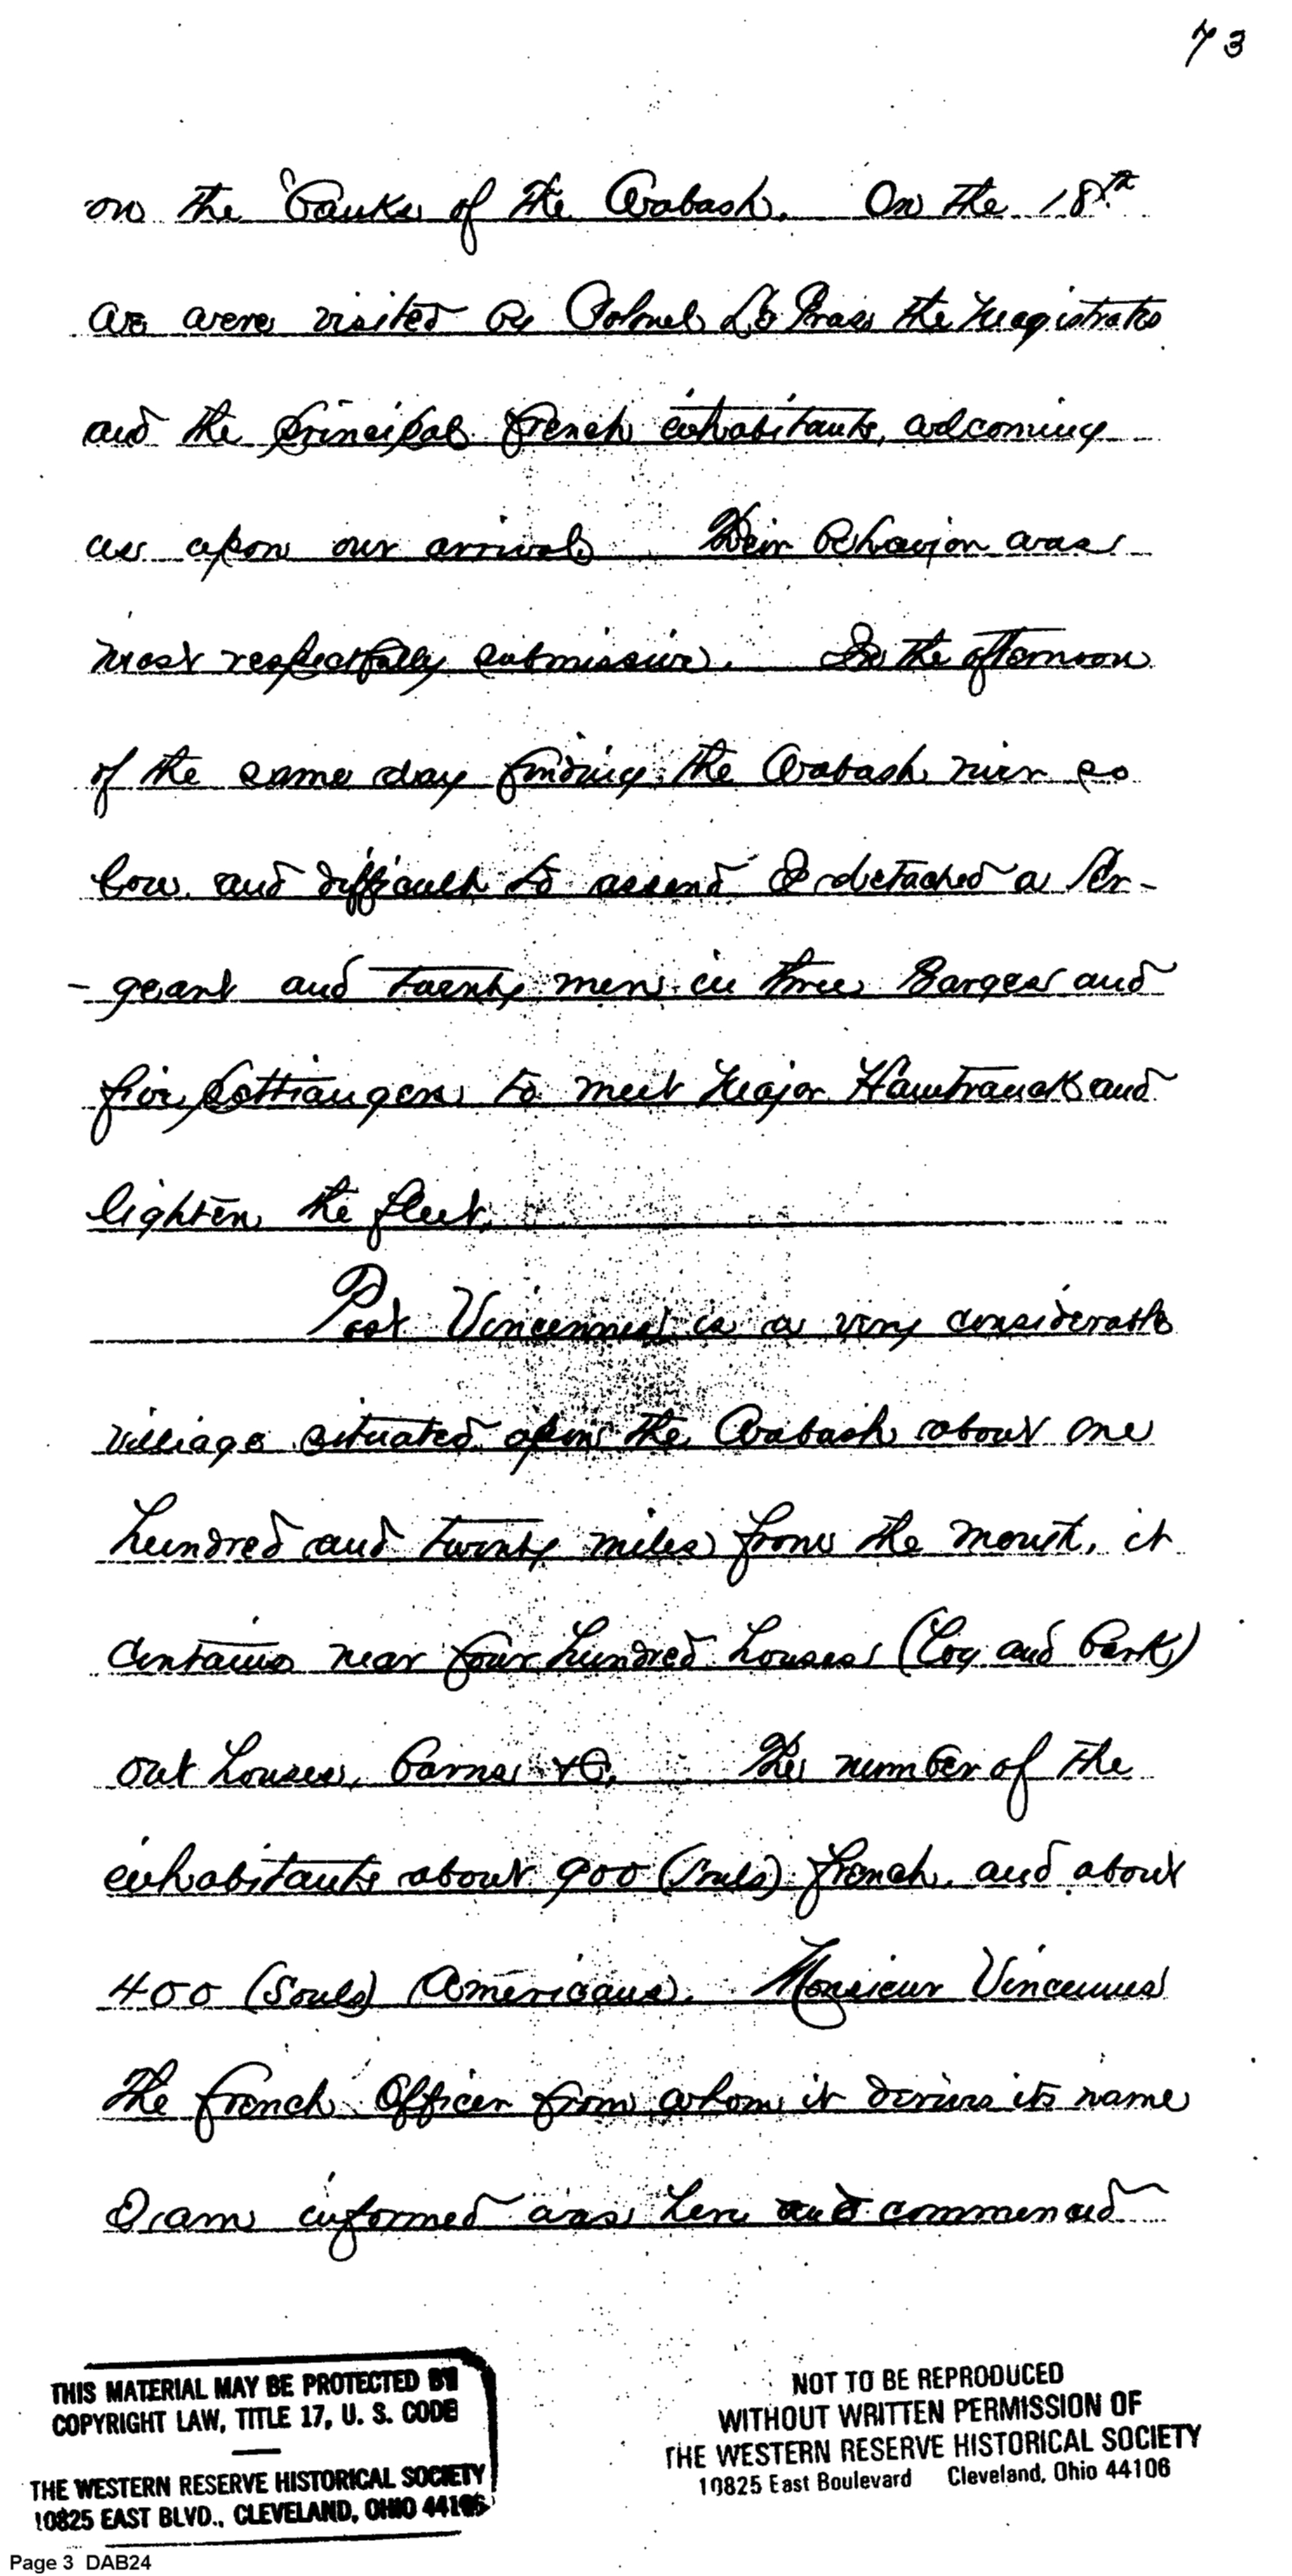 73
on the Banks of the Wabash. On the 18th
we were visited by Colonel Le Grass the Magistrates
and the principal french inhabitants, welcoming
us upon our arrival. Their behavior was
most respectfully submissive. In the afternoon
of the same day finding the Wabash river so
low and difficult to assend I detached a Ser-
-geant and twenty men in three Barges and
five pettiaugers to meet Major Hamtramck and
lighten the fleet.
Post Vincennes is a very considerable
village situated upon the Wabash about one
hundred and twenty miles from the mouth, it
contains near four hundred houses (Log and bark)
out houses, barns &C. The number of the
inhabitants about 900 (souls) french, and about
400 (Souls) Americans. Monsieur Vincennes
the french Officer from whom it derives its name
I am informed was here and commenced
THIS MATERIAL MAY BE PROTECTED BY
COPYRIGHT LAW, TITLE 17, U. S. CODE
THE WESTERN RESERVE HISTORICAL SOCIETY
10825 EAST BLVD., CLEVELAND, OHIO 44106
NOT TO BE REPRODUCED
WITHOUT WRITTEN PERMISSION OF
THE WESTERN RESERVE HISTORICAL SOCIETY
10825 East Boulevard Cleveland, Ohio 44106
Page 3 DAB24